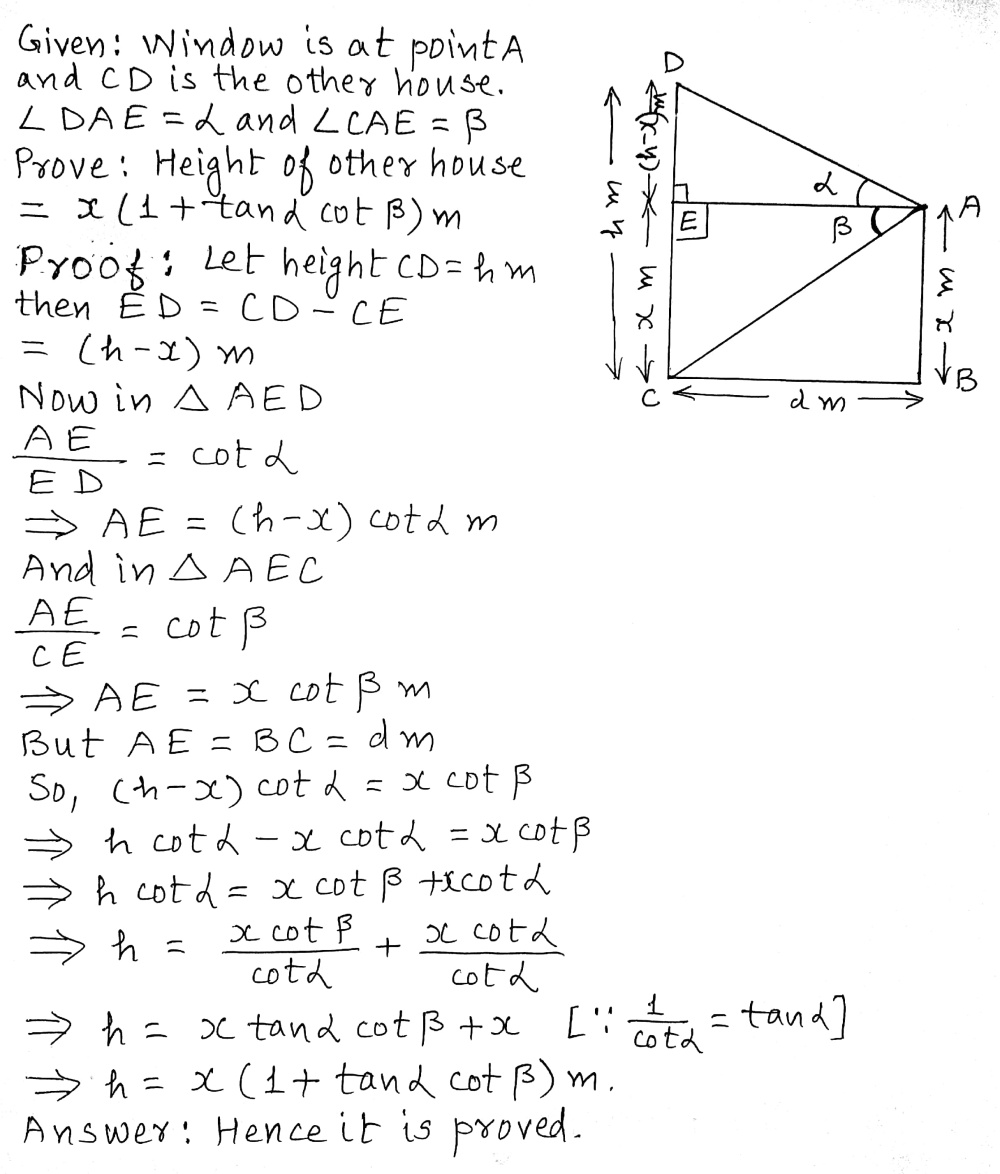 Given: Window is at point A
and CD is the other house.
∠DAE = α and ∠CAE = β
Prove: Height of other house
= x(1+tanα cot β) m
Proof: Let height CD = h m
then ED = CD - CE
= (h-x) m
Now in △ AED
AE/ED = cot α
⇒ AE = (h-x) cotα m
And in △ AEC
AE/CE = cot β
⇒ AE = x cot β m
But AE = BC = d m
So, (h-x) cot α = x cot β
⇒ h cotα - x cotα = x cotβ
⇒ h cotα = x cot β + x cotα
⇒ h = x cot β/cotα + x cotα/cotα
⇒ h = x tanα cot β + x [∵ 1/cotα = tanα]
⇒ h = x(1+ tanα cot β) m.
Answer: Hence it is proved.
D
h m
(h-x) m
x m
E
α
β
A
x m
B
C
d m